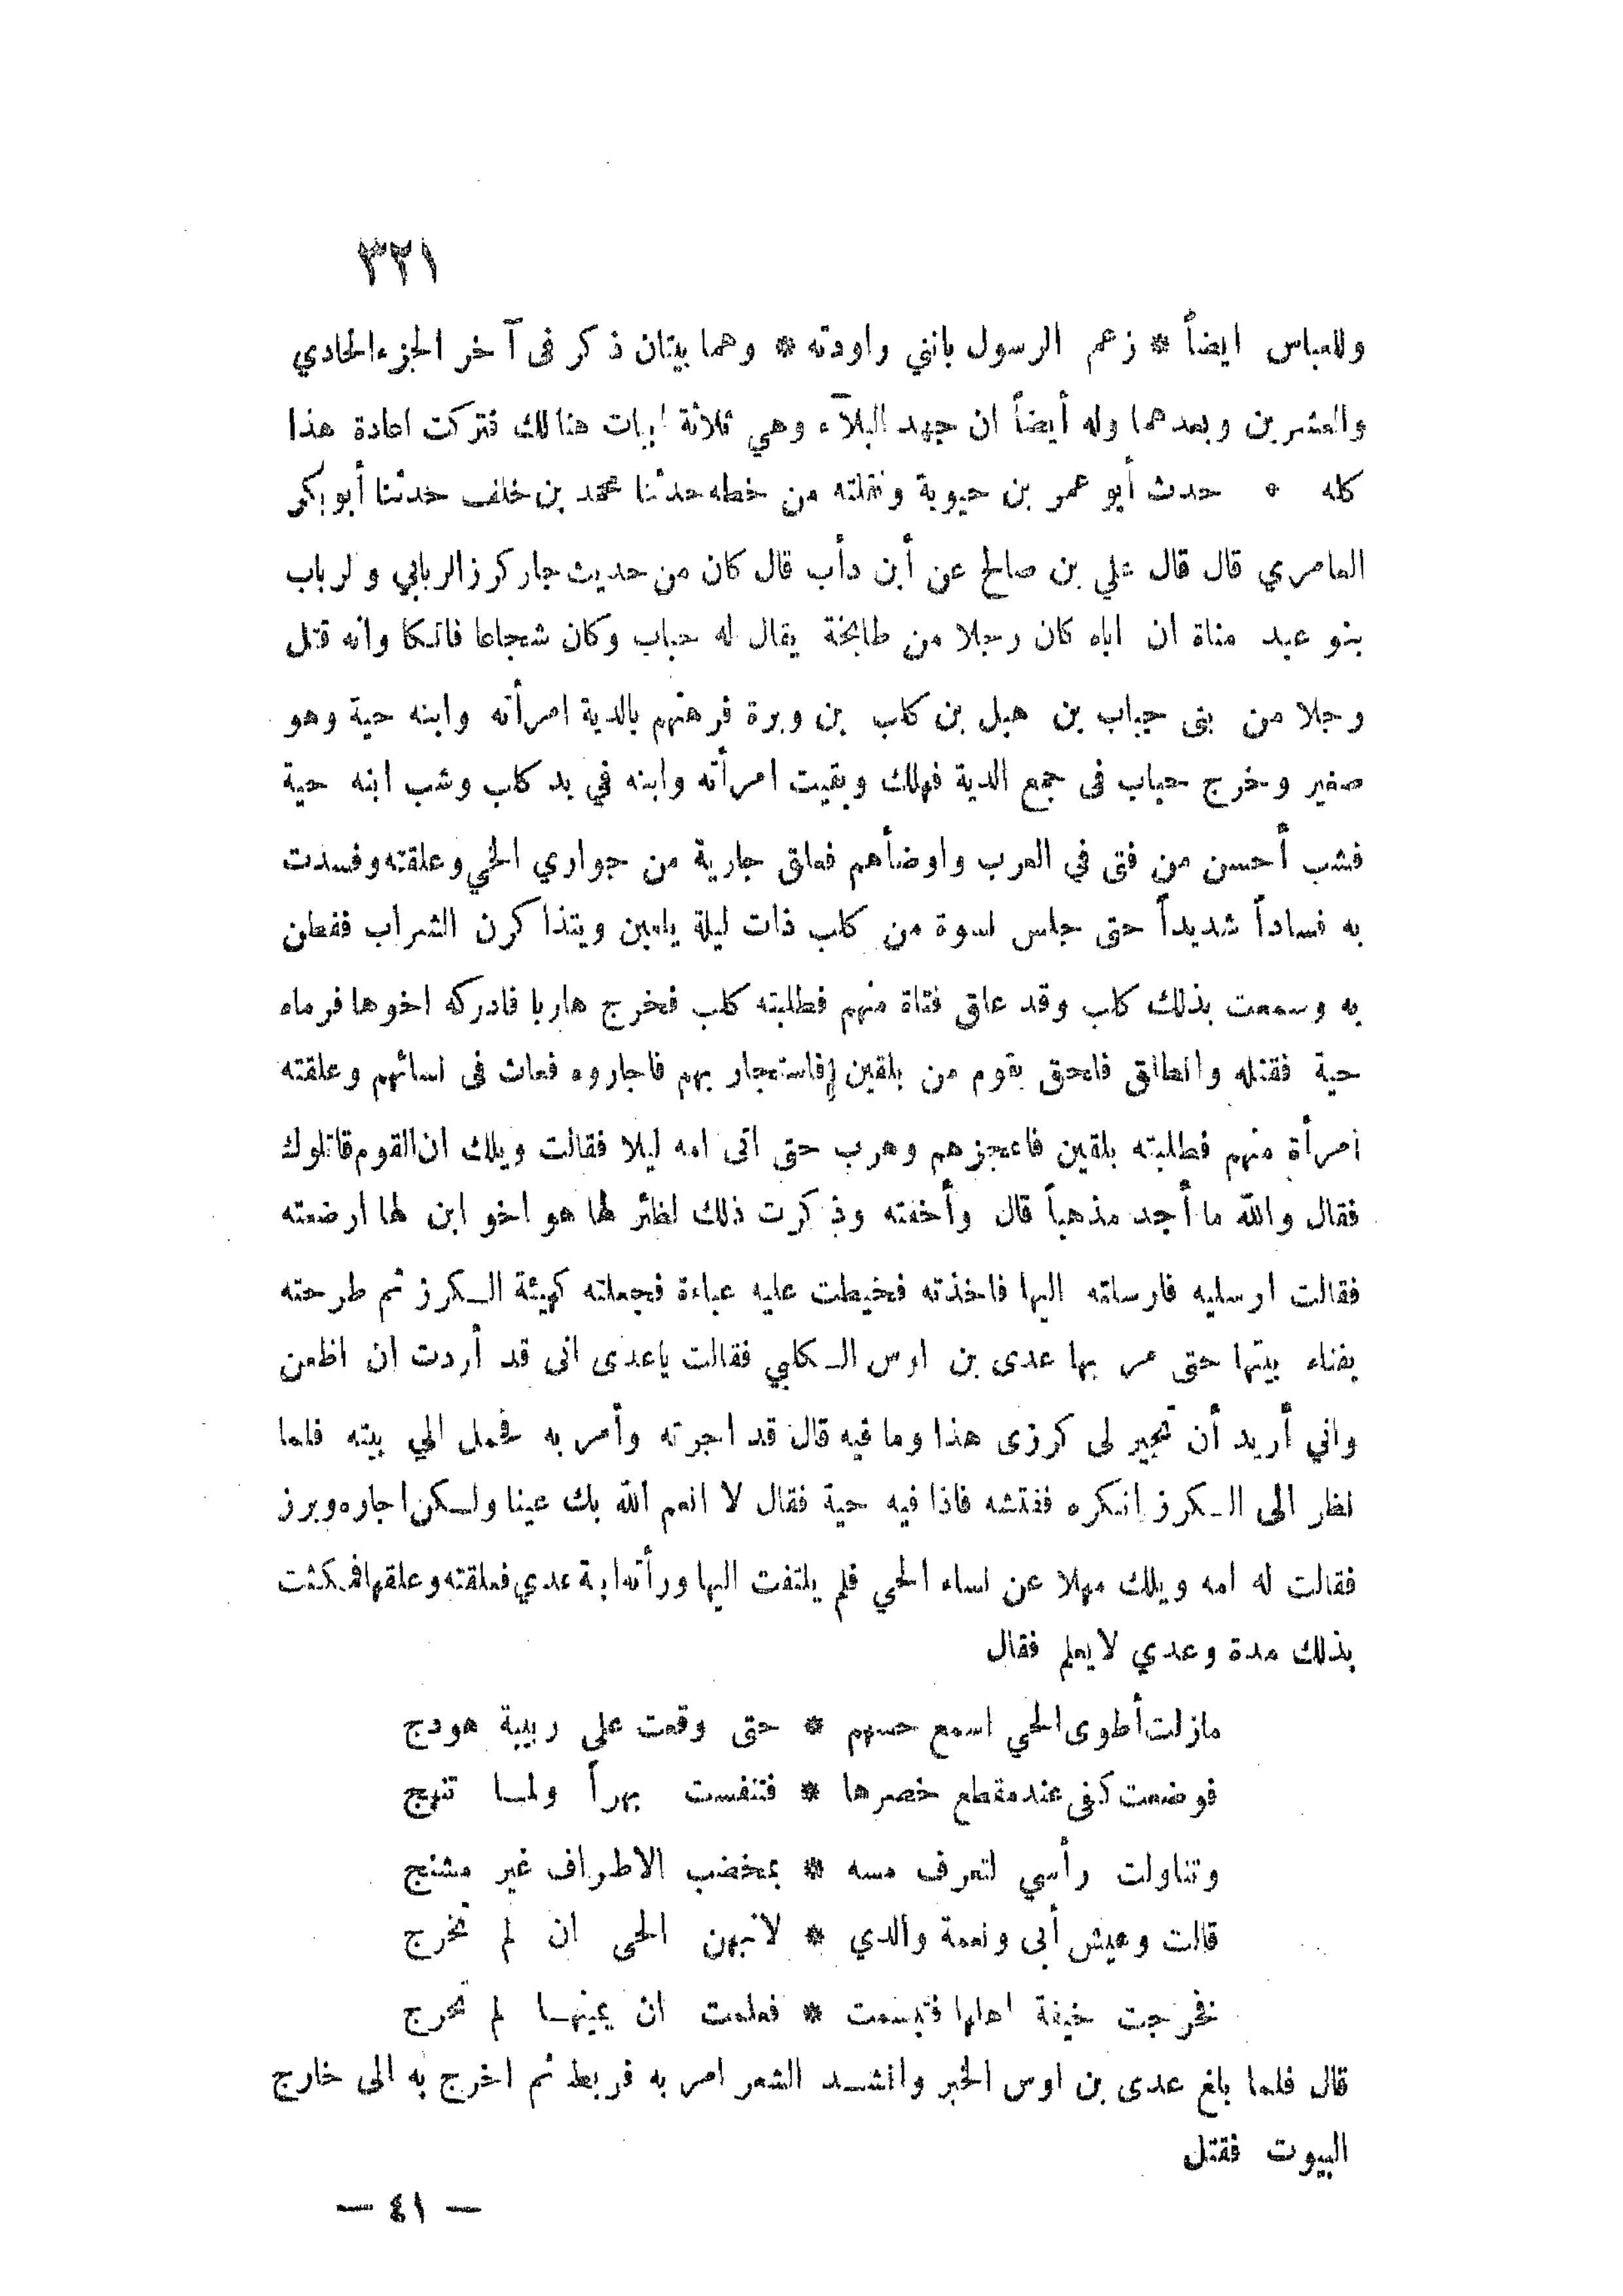 ٣٢١
وللعباس ايضاً * زعم الرسول بانني راودته * وهما بيتان ذكر فى آخر الجزء الحادي
والعشرين وبعدهما وله أيضاً ان جهد البلآء وهي ثلاثة ابيات هنالك فتركت اعادة هذا
كله * حدث أبو عمر بن حيوية ونقلته من خطه حدثنا محمد بن خلف حدثنا أبو بكر
العامري قال قال علي بن صالح عن أبن دأب قال كان من حديث جار كرز الربابي والرباب
بنو عبد مناة ان اباه كان رجلا من طابخة يقال له حباب وكان شجاعا فاتكا وانه قتل
رجلا من بنى جباب بن هبل بن كلب بن وبرة فرهنهم بالدية امرأته وابنه حية وهو
صغير وخرج حباب فى جمع الدية فهلك وبقيت امرأته وابنه في يد كلب وشب ابنه حية
فشب أحسن من فتى في العرب واوضأهم فعلق جارية من جواري الحي وعلقته وفسدت
به فساداً شديداً حتى جلس نسوة من كلب ذات ليلة يلعبن ويتذاكرن الشراب ففطن
به وسمعت بذلك كلب وقد علق فتاة منهم فطلبته كلب فخرج هاربا فادركه اخوها فرماه
حية فقتله وانطلق فلحق بقوم من بلقين فاستجار بهم فاجاروه فعاث فى نسائهم وعلقته
امرأة منهم فطلبته بلقين فاعجزهم وهرب حتى اتى امه ليلا فقالت ويلك ان القوم قاتلوك
فقال والله ما أجد مذهباً قال وأخفته وذكرت ذلك لظئر لها هو اخو ابن لها ارضعته
فقالت ارسليه فارسلته اليها فاخذته فخيطت عليه عباءة فجعلته كهيئة الكرز ثم طرحته
بفناء بيتها حتى مر بها عدى بن اوس الكلبي فقالت ياعدى انى قد أردت ان اظعن
واني أريد أن تجير لى كرزى هذا وما فيه قال قد اجرته وأمر به فحمل الي بيته فلما
نظر الى الكرز انكره ففتشه فاذا فيه حية فقال لا انعم الله بك عينا ولكن اجاره وبرز
فقالت له امه ويلك مهلا عن نساء الحي فلم يلتفت اليها ورأته ابنة عدي فعلقته وعلقها فمكثت
بذلك مدة وعدي لايعلم فقال
مازلت أطوى الحي اسمع حسهم * حتى وقعت على ربيبة هودج
فوضعت كفى عند مقطع خصرها * فتنفست بهراً ولما تنهج
وتناولت رأسي لتعرف مسه * بمخضب الاطراف غير مشنج
قالت وعيش أبى ونعمة والدي * لانبهن الحى ان لم تخرج
فخرجت خيفة اهلها فتبسمت * فعلمت ان يمينها لم تحرج
قال فلما بلغ عدى بن اوس الخبر وانشد الشعر امر به فربط ثم اخرج به الى خارج
البيوت فقتل
— ٤١ —